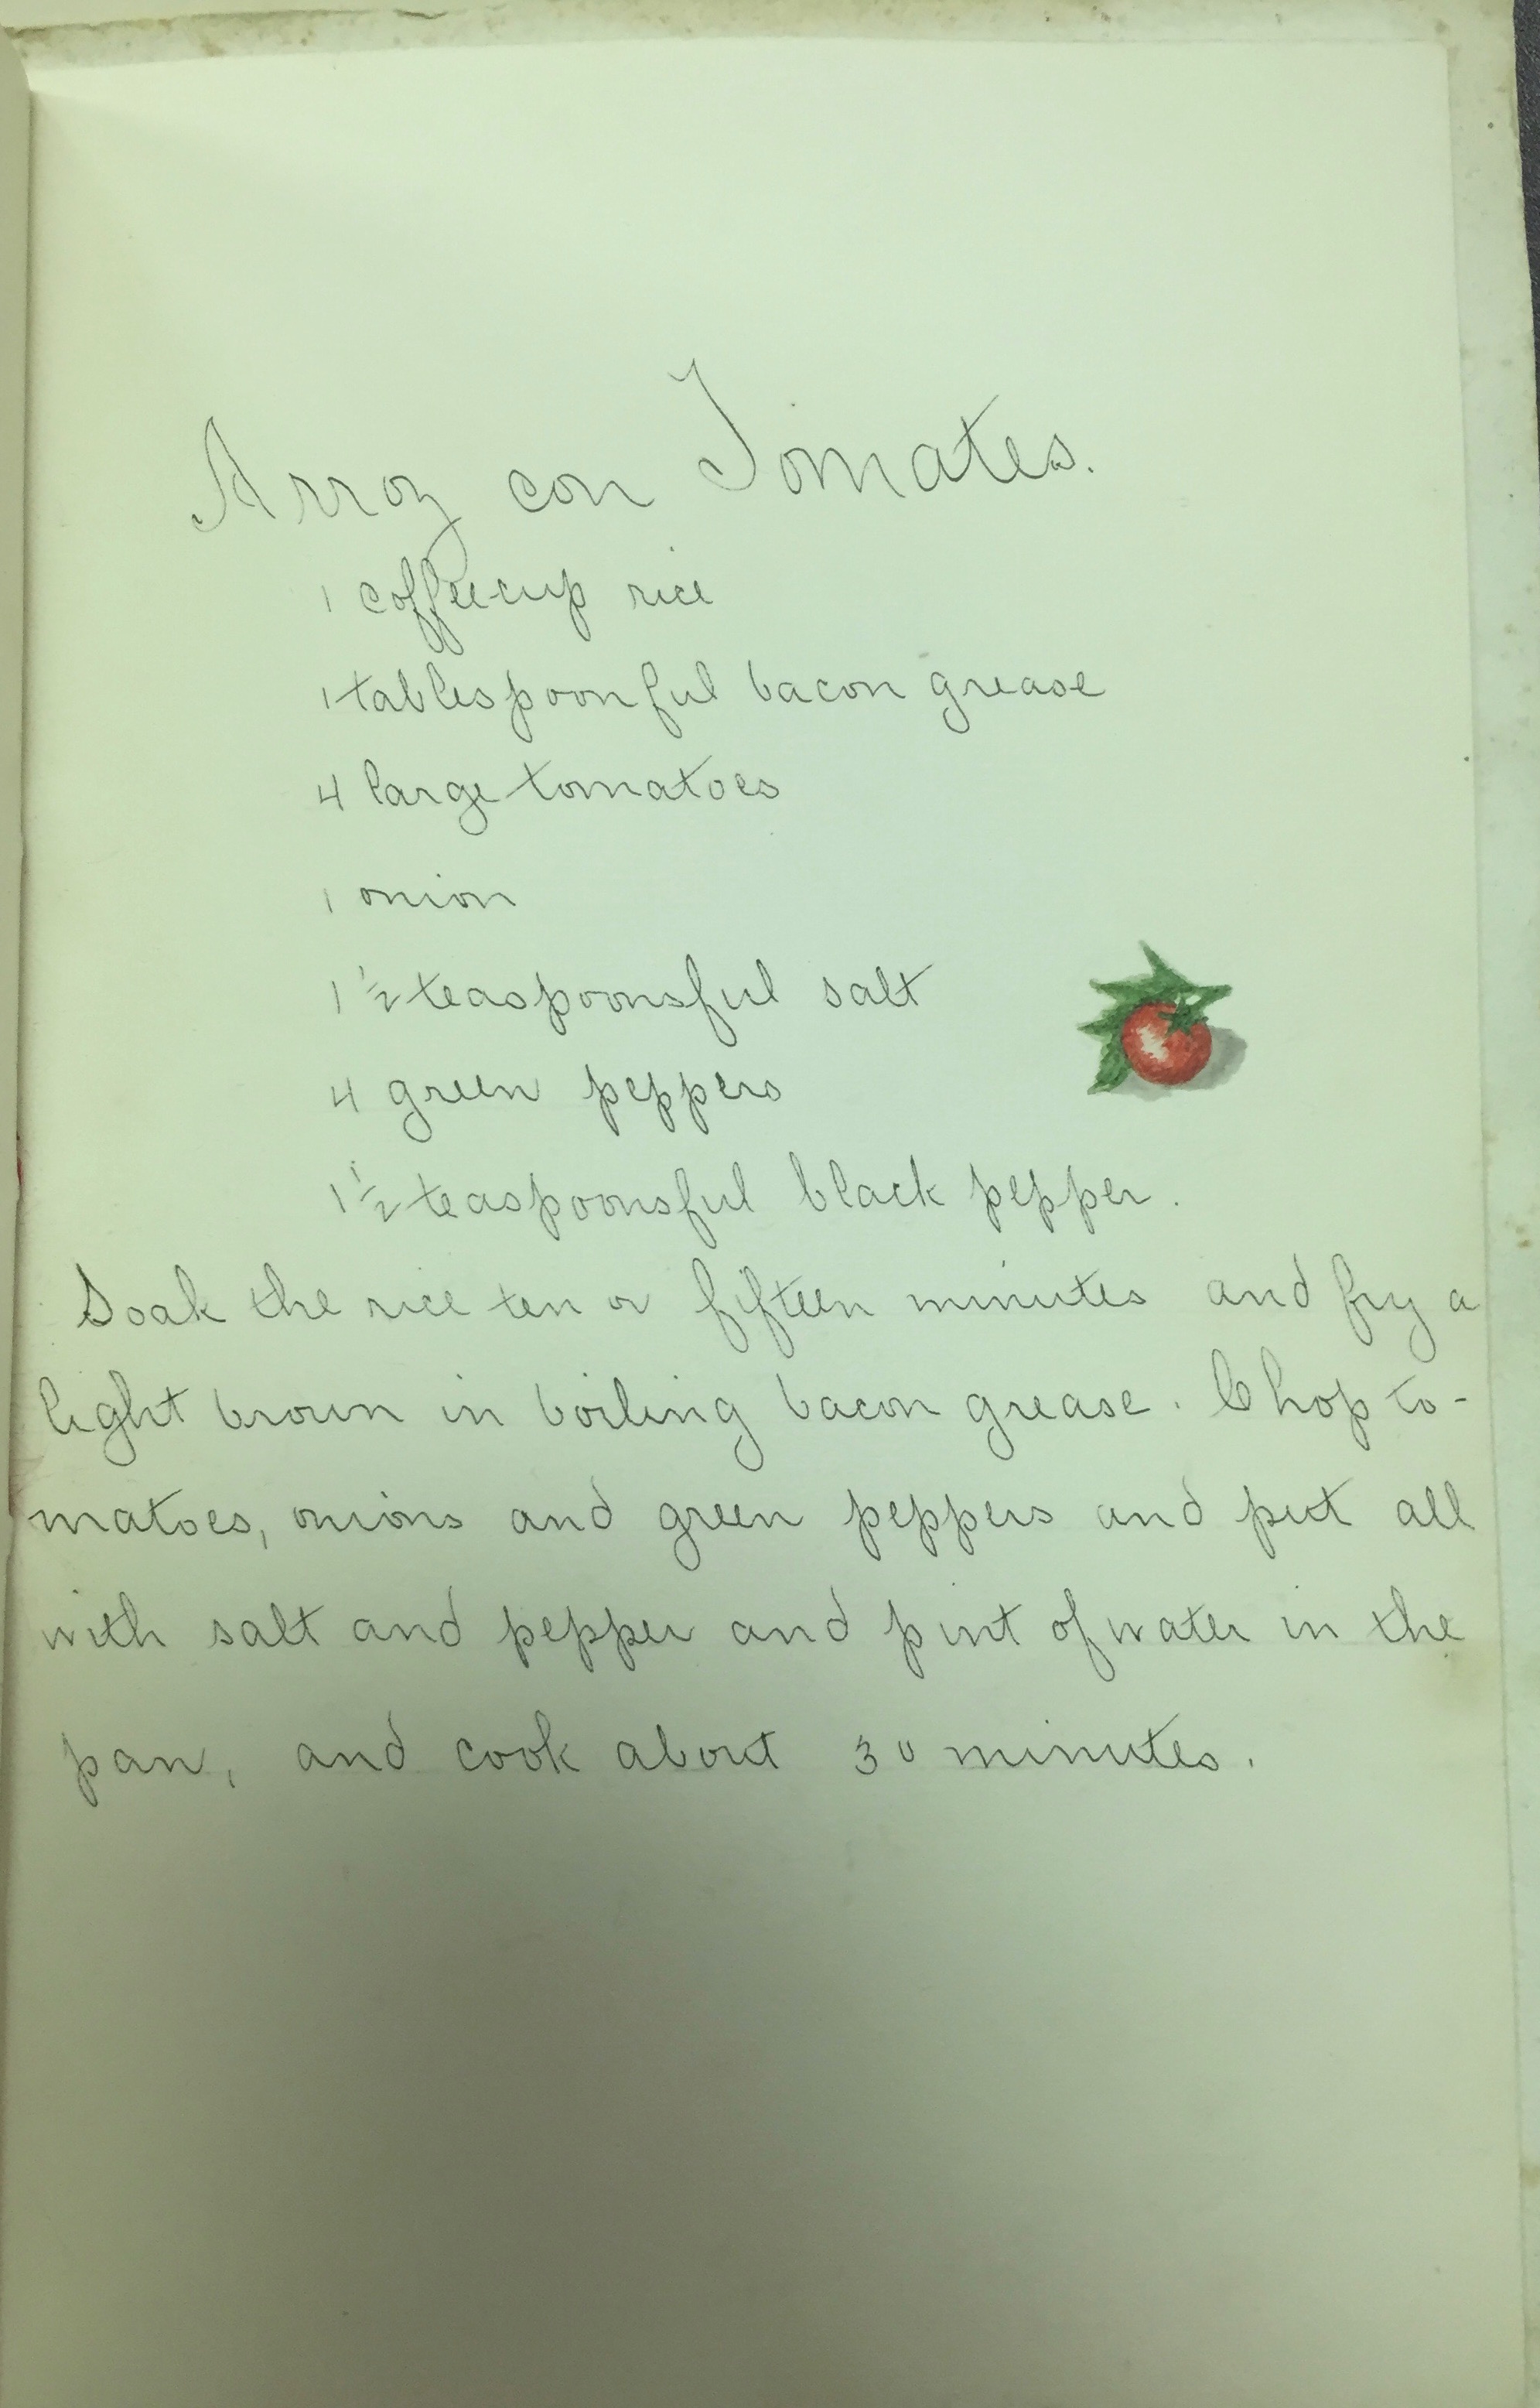 Arroz con Tomates.
1 coffee-cup rice
1 tablespoonful bacon grease
4 large tomatoes
1 onion
1 1/2 teaspoonsful salt
4 green peppers
1 1/2 teaspoonsful black pepper.
Soak the rice ten or fifteen minutes and fry a
light brown in boiling bacon grease. Chop to-
matoes, onions and green peppers and put all
with salt and pepper and pint of water in the
pan, and cook about 30 minutes.